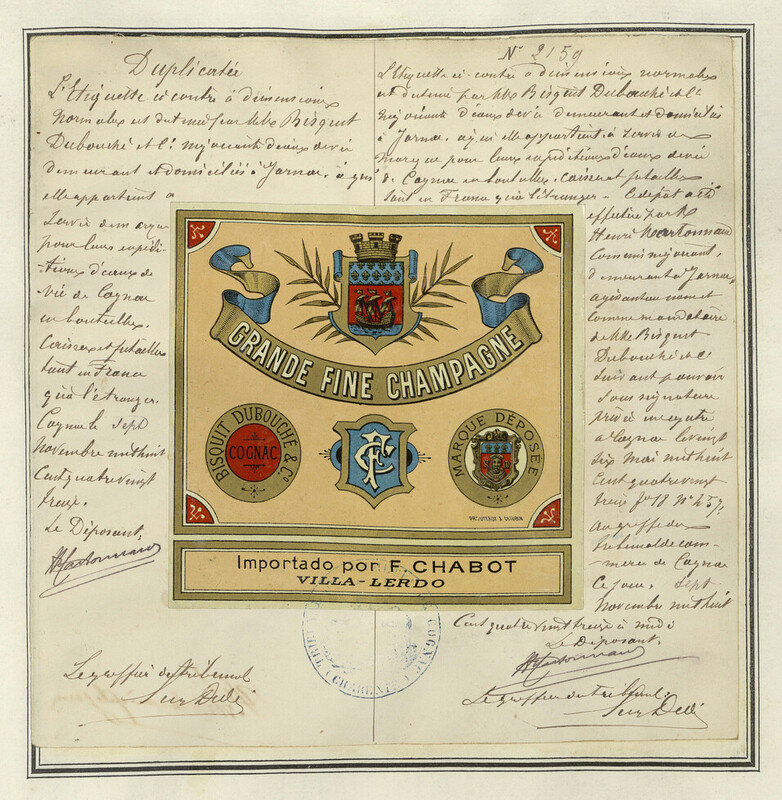 Duplicata
L'Etiquette ci contre à dimensions
normales est détenue par MM Bisquit
Dubouché et Cie négociants d'eaux de vie
demeurant et domiciliés à Jarnac, à qui
elle appartient
pour leurs expédi-
tions d'eaux de
vie de Cognac
en bouteilles,
Caisses et futailles
tant en France
qu'à l'étranger.
Cognac le Sept
Novembre mil huit
Cent quatre vingt
treize.
Le Déposant,
Le greffier du tribunal
No 2159
L'Etiquette ci-contre à dimensions normales
est détenue par MM Bisquit Dubouché et Cie
négociants d'eaux de vie demeurant et domiciliés
à Jarnac, à qui elle appartient, à servir de
marque pour leurs expéditions d'eaux de vie
de Cognac en bouteilles, caisses et futailles
tant en France qu'à l'étranger - Le dépôt a été
effectué par M
Henri
Commis négociant,
demeurant à Jarnac,
agissant au nom et
comme mandataire
de MM Bisquit
Dubouché et Cie
suivant pouvoir
sous signature
privée
à Cognac le vingt
six Mai mil huit
Cent quatre vingt
treize
au greffe du
tribunal de com-
merce de Cognac
Ce jour, Sept
Novembre mil huit
Cent quatre vingt treize à midi
Le Déposant,
Le greffier du tribunal
GRANDE FINE CHAMPAGNE
BISQUIT DUBOUCHÉ & Co
COGNAC
FC
MARQUE DÉPOSÉE
Importado por F. CHABOT
VILLA-LERDO
COGNAC
(CHARENTE)